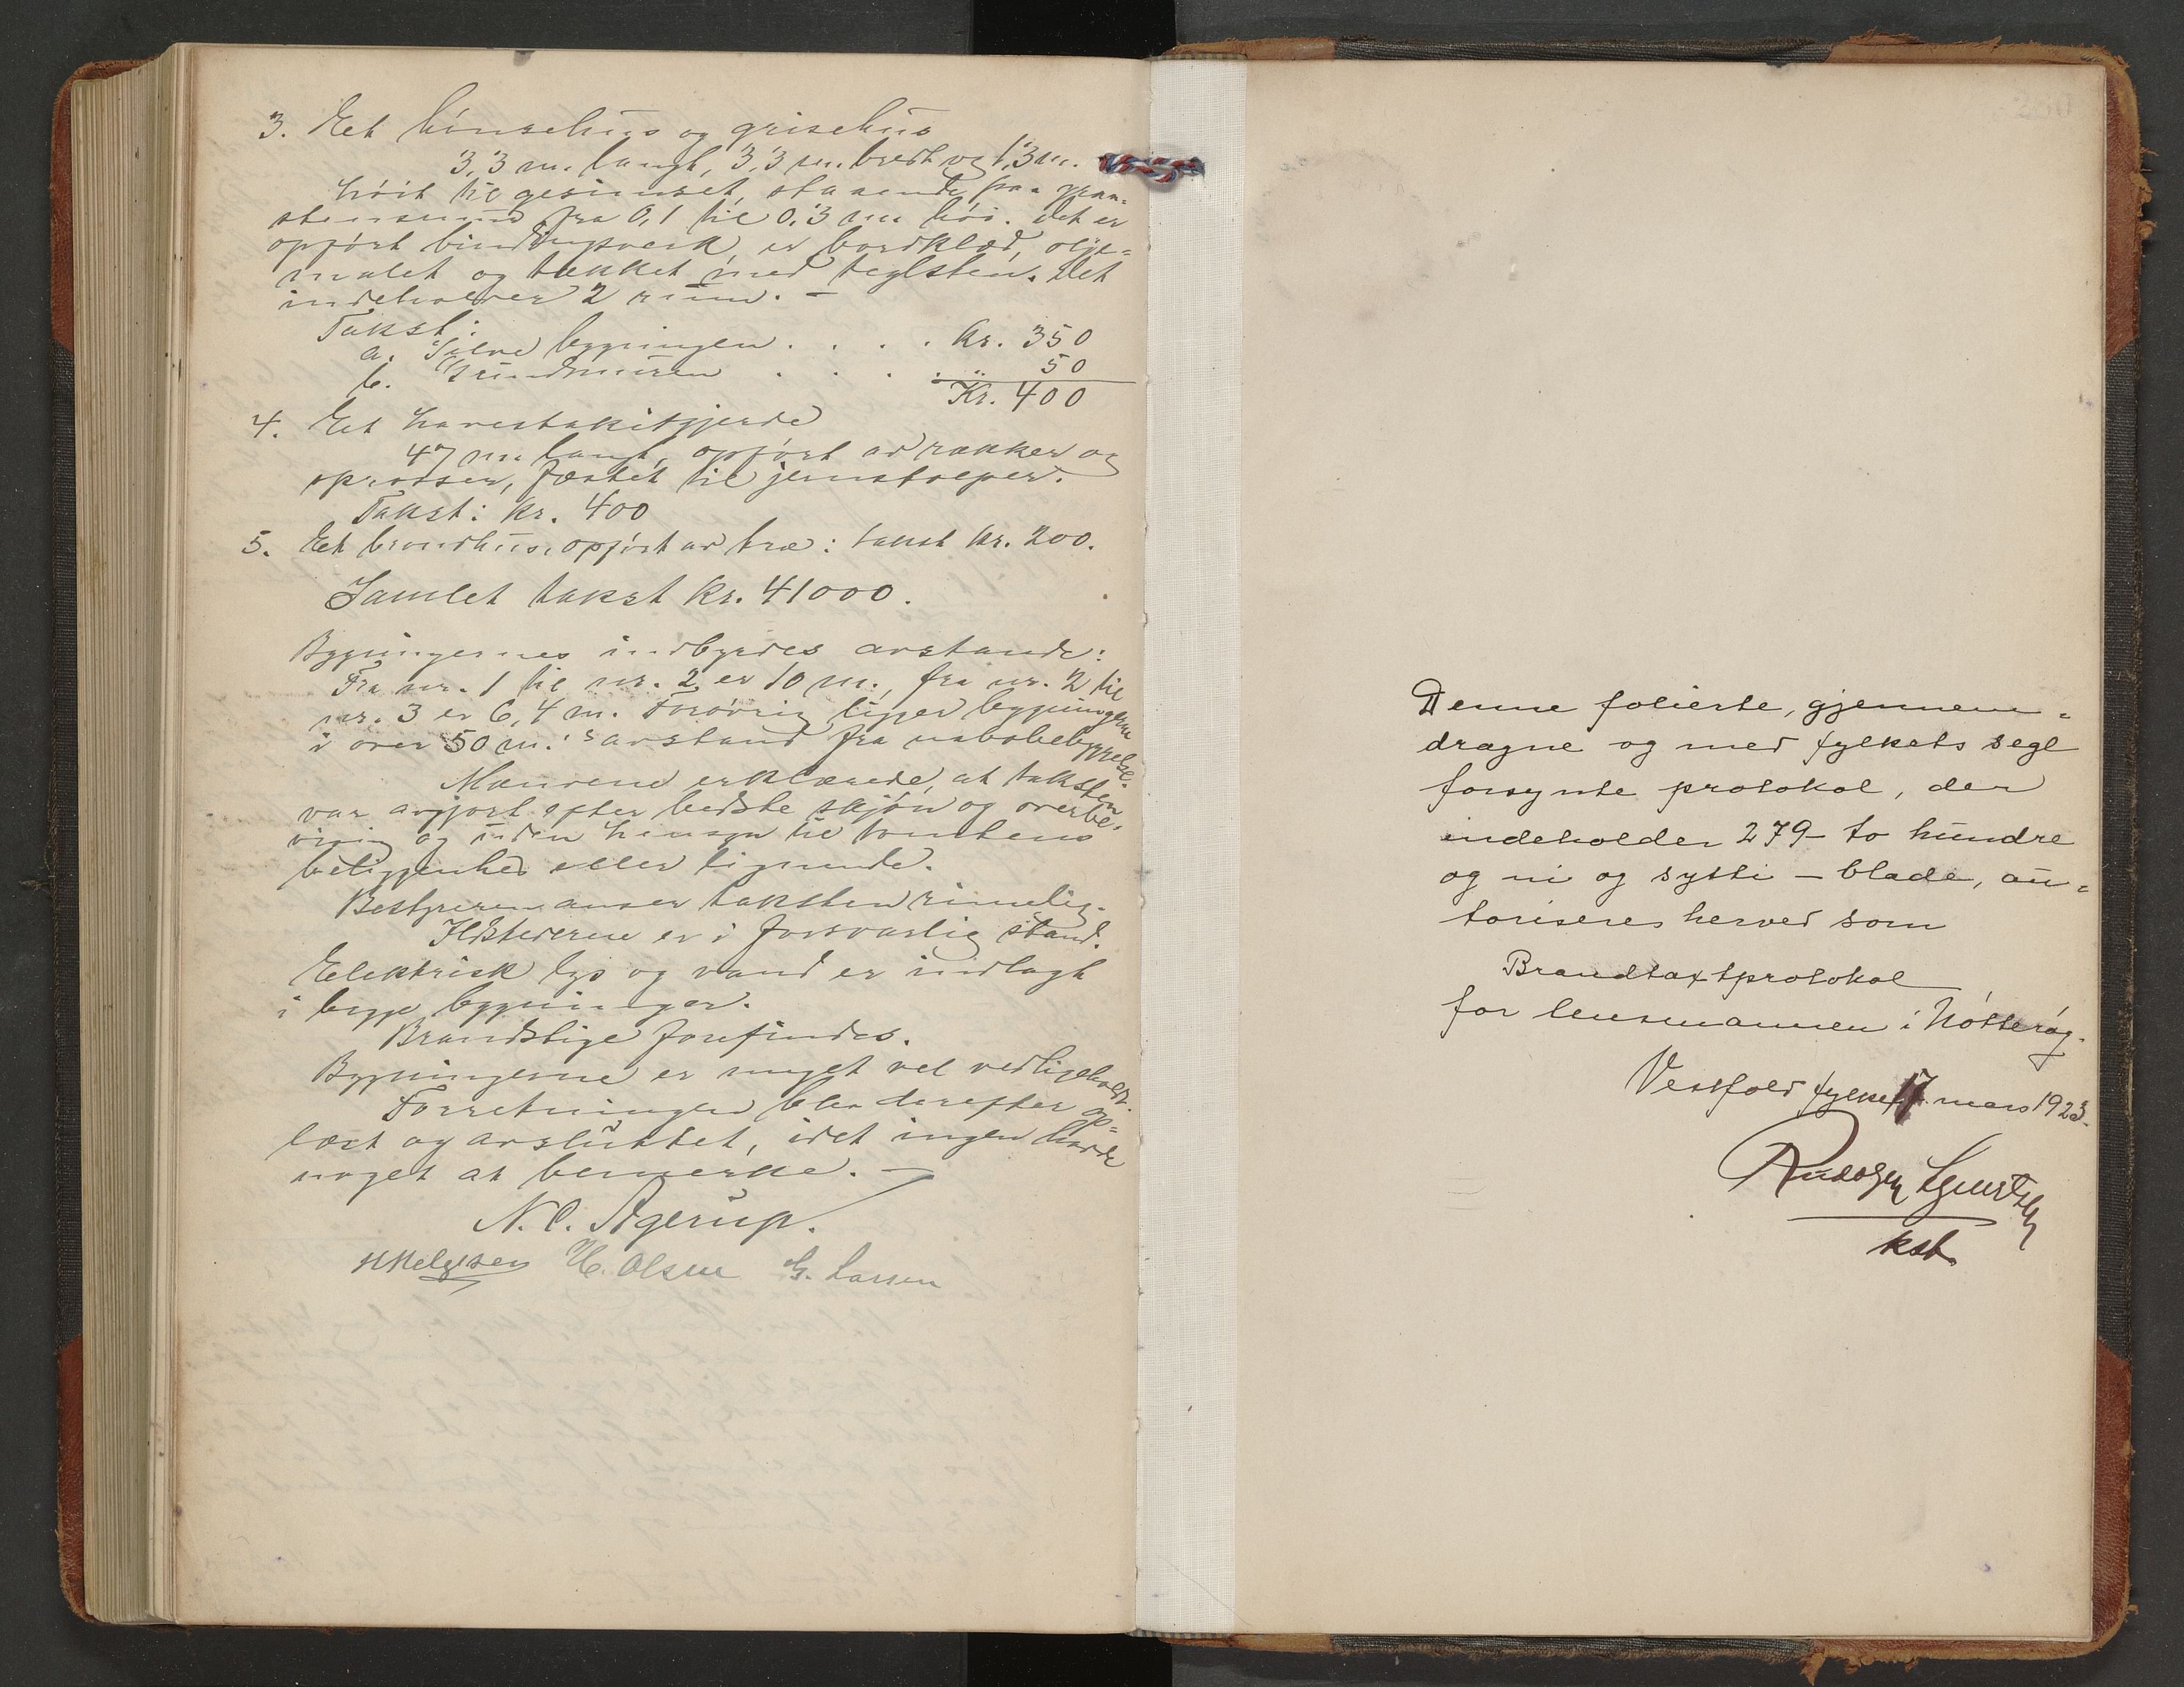 3. Et hønsehus og grisehus
3,3 m. langt, 3,3 m. bredt og 1,3 m.
høit til gesimset, staaende paa graa-
stensmur fra 0,1 til 0,3 m høi. Det er
opført bindingsverk, er bordklæd, olje-
malet og tækket med teglsten. Det
indeholder 2 rum. -
Takst:
a. Selve bygningen . . . . Kr. 350
b. Grundmuren . . . . " 50
Kr. 400
4. Et havestakitgjerde
47 m. langt, opført av rækker og
sprosser, fæstet til jernstolper.
Takst: Kr. 400
5. Et brøndhus opført av træ: takst kr. 200.
Samlet takst Kr. 41000.
Bygningernes indbyrdes avstande:
Fra nr. 1 til nr. 2 er 10 m., fra nr. 2 til
nr. 3 er 6,4 m. Forøvrig ligger bygningerne
i over 50 m.'s avstand fra nabobebyggelse.
Mændene erklærede, at taksten
var avgjort efter bedste skjøn og overbe-
visning og uden hensyn til tomtens
beliggenhed eller lignende.
Bestyreren anser taksten rimelig.
Ildstederne er i forsvarlig stand.
Elektrisk lys og vand er indlagt
i begge bygninger.
Brandstige forefindes.
Bygningerne er meget vel vedligeholdt.
Forretningen blev derefter op-
læst og avsluttet, idet ingen hadde
noget at bemerke. -
N. C. Agerup.
H. Olsen G. Larsen
Denne folierte, gjennem-
dragne og med fylkets segl
forsynte protokol, der
indeholder 279 - to hundre
og ni og sytti - blade, au-
toriseres herved som
Brandtaxtprotokol
for lensmannen i Nøtterøy.
Vestfold fylke 17 mars 1923.
kst.